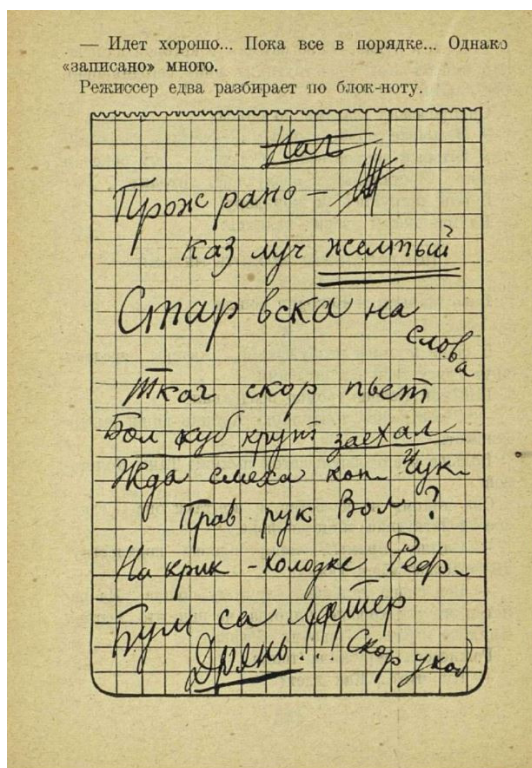 — Идет хорошо... Пока все в порядке... Однако
«записано» много.
Режиссер едва разбирает по блок-ноту.
Нач
Прож рано —
каз луч желтый
Стар вска на
слова
Ткач скор пьет
Бол куб крут заехал
Жда смеха коп Чук
Прав рук Вол?
На крик - Колодке Реф-
Бум са матер
Дрянь!!! Скор укод